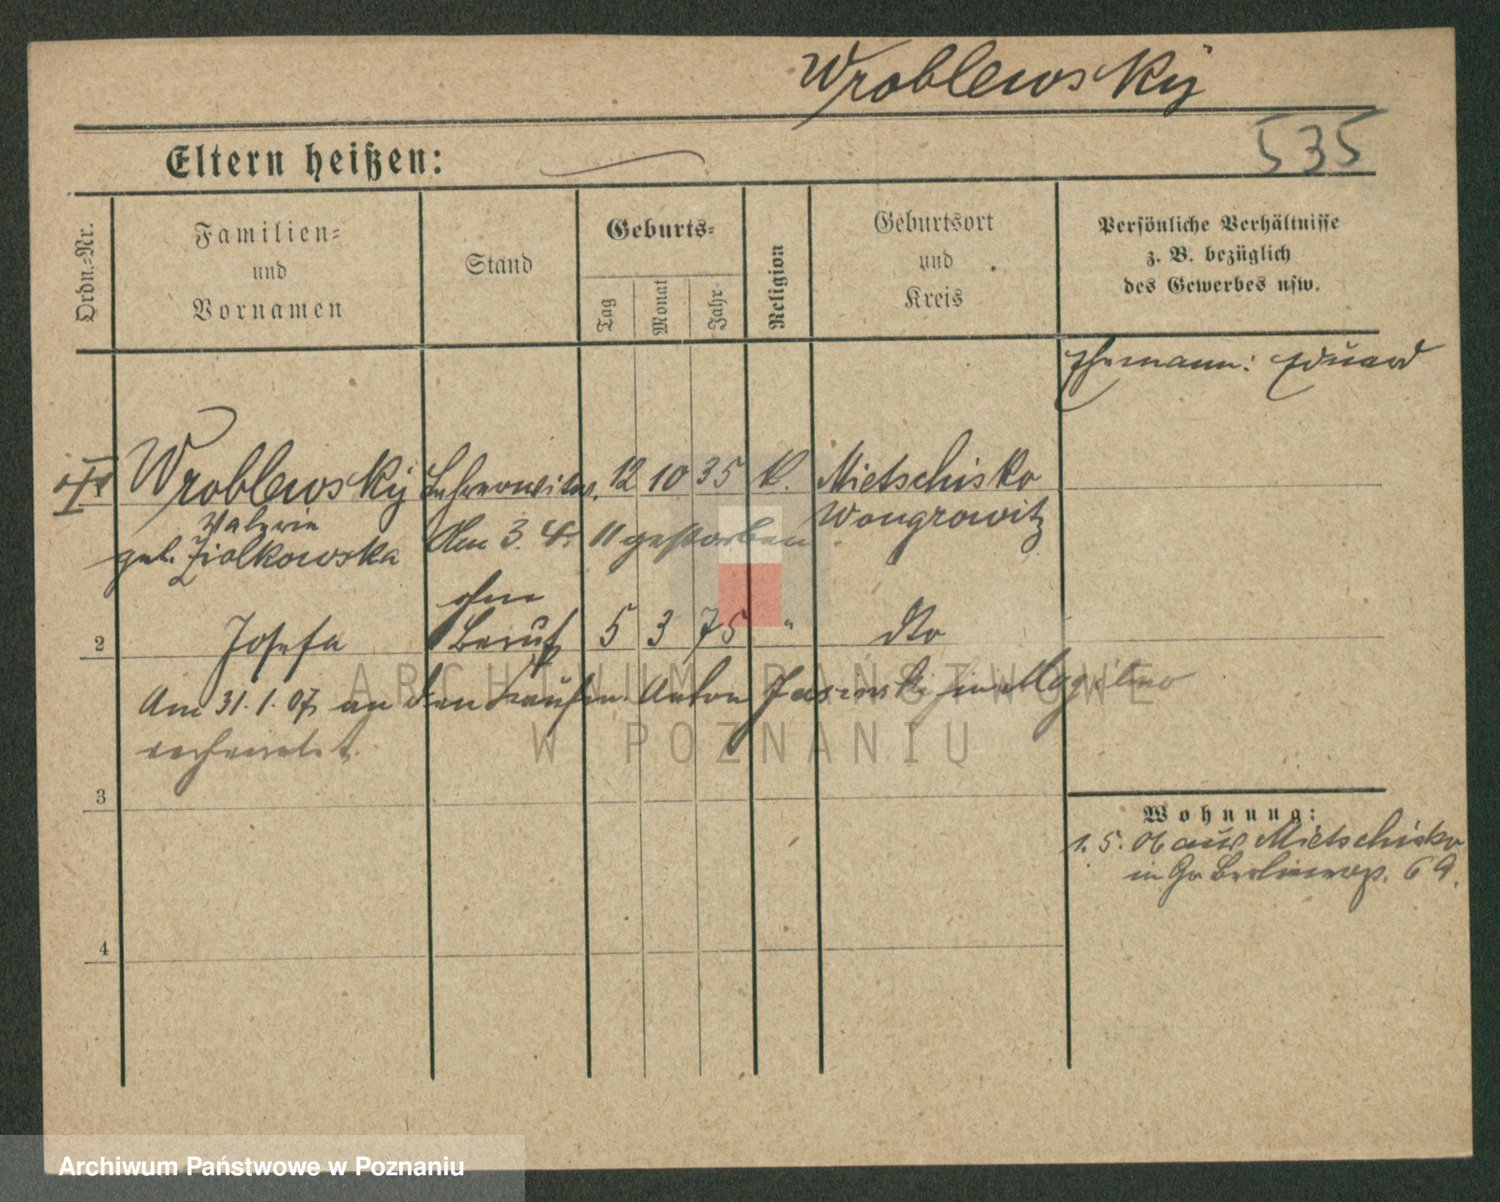 Wroblewsky
Eltern heißen:
535
Ordn.-Nr.
Familien-
und
Vornamen
Stand
Geburts-
Tag
Monat
Jahr
Religion
Geburtsort
und
Kreis
Persönliche Verhältnisse
z. B. bezüglich
des Gewerbes usw.
Ehemann: Eduard
Wroblewsky Lehrerwitw. 12 10 35 k. Mietschisko
Valerie
geb. Ziolkowska Am 3. 4. 11 gestorben Wongrowitz
2 Josefa ohne Beruf 5 3 75 " dto
Am 31.1.07 an den Kaufm. Anton Jasinski in Mogilno
verheiratet.
3
4
Wohnung:
1. 5. 06 aus Mietschisko
in Gn Berlinerstr. 69.
ARCHIWUM PAŃSTWOWE
W POZNANIU
Archiwum Państwowe w Poznaniu